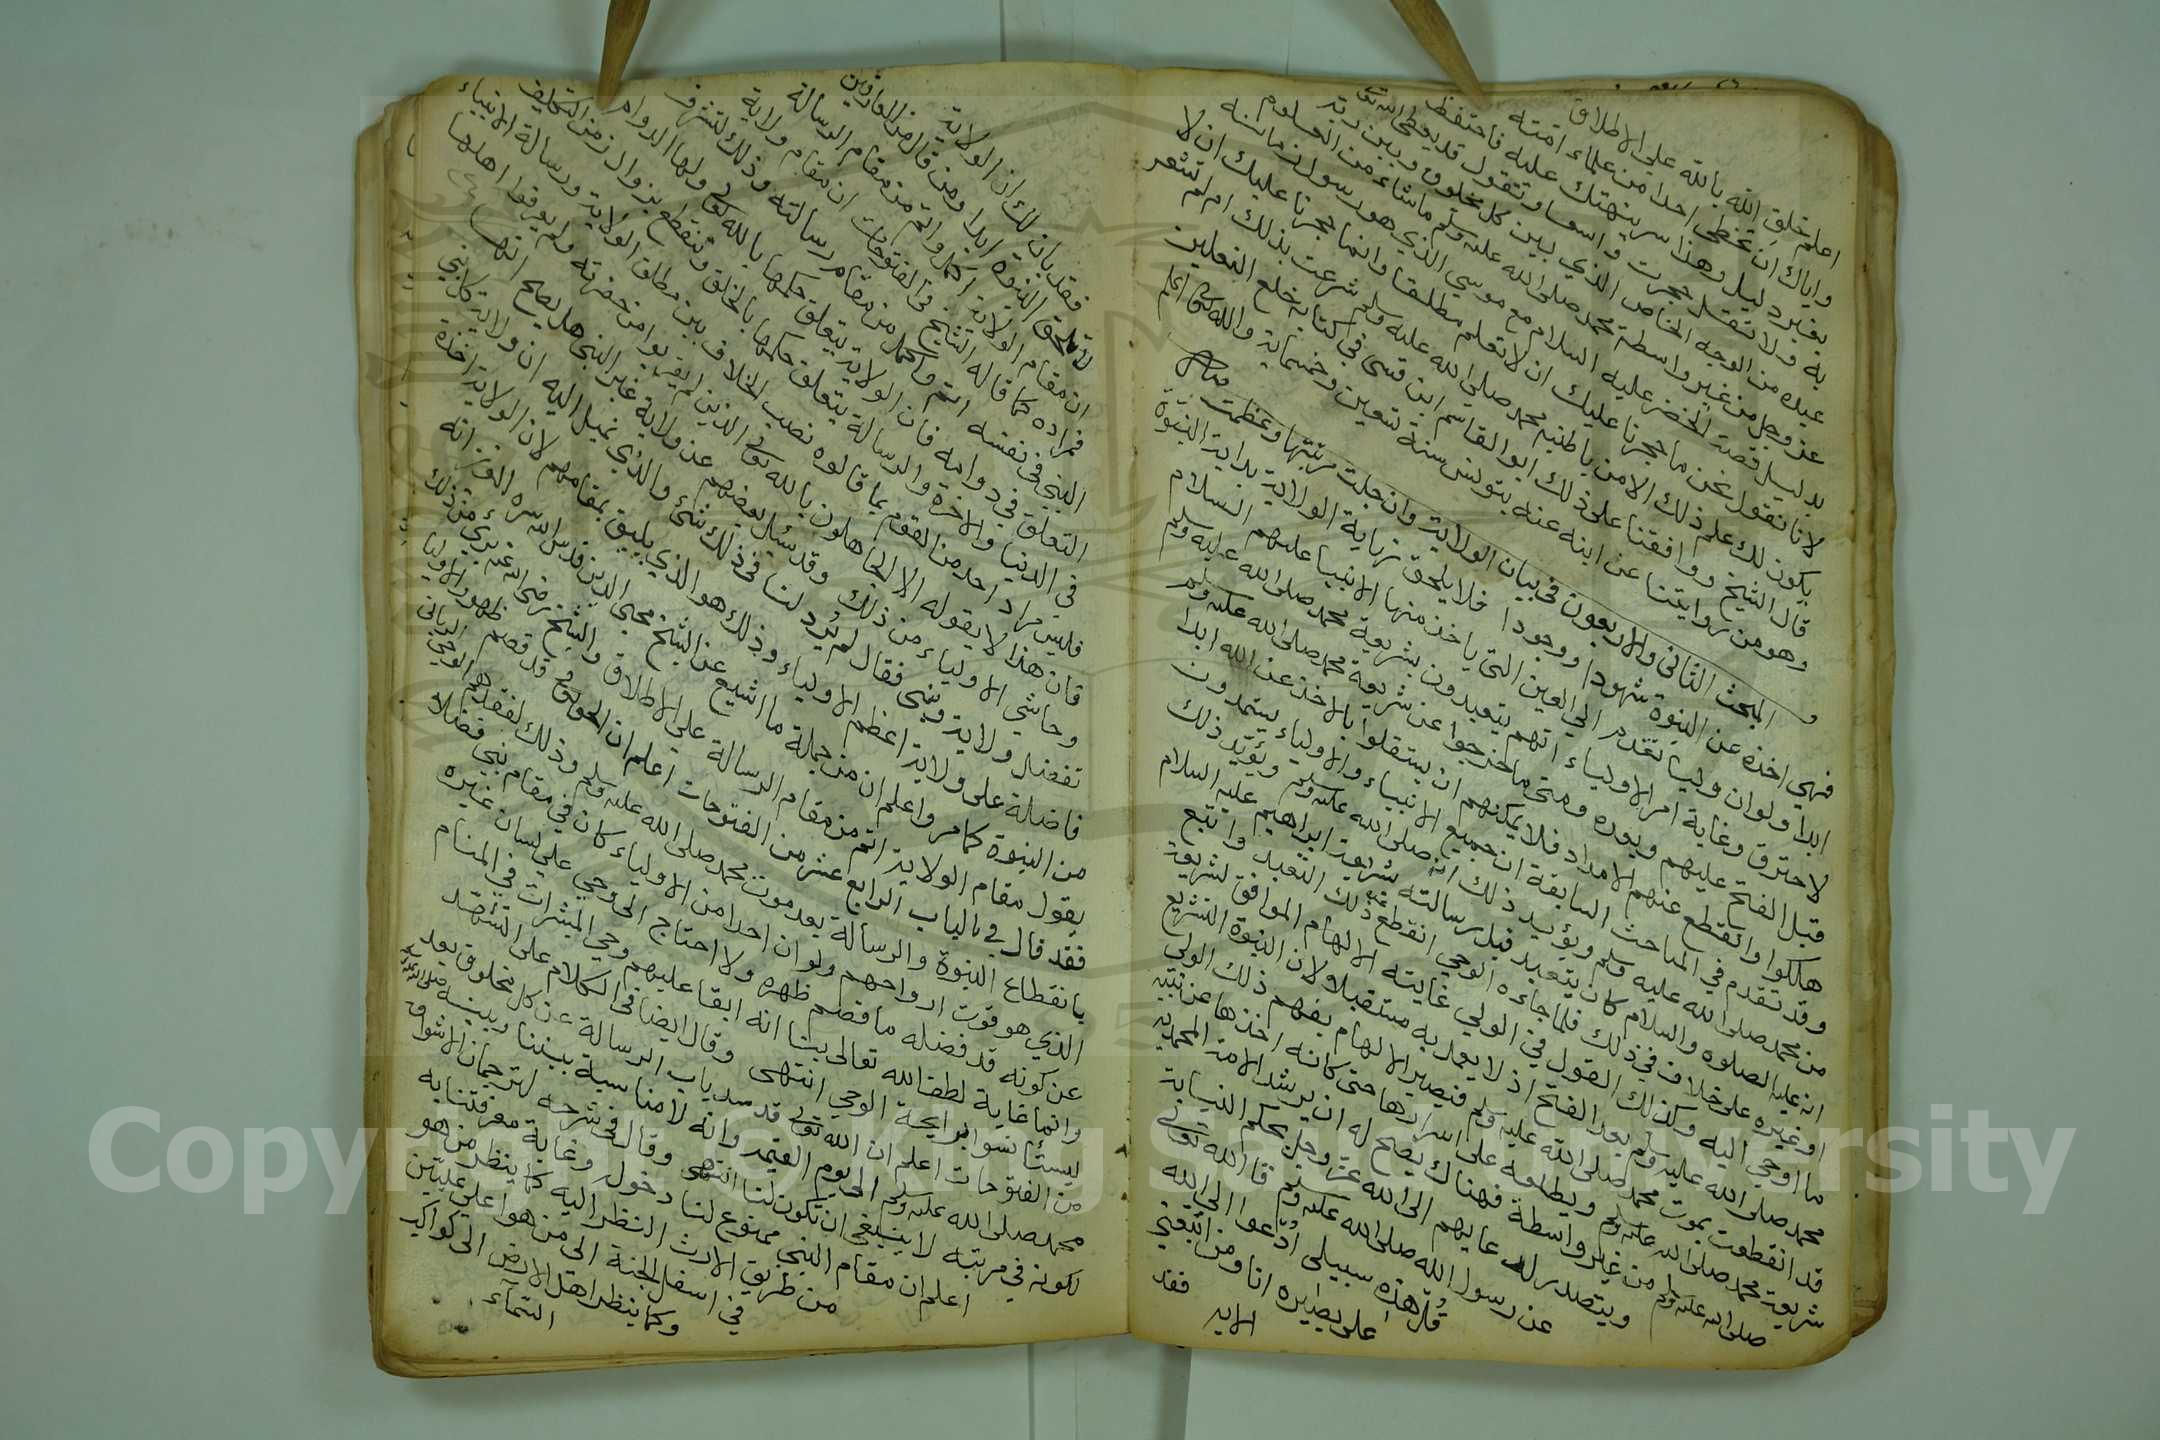 اعلم خلق الله بالله على الاطلاق
واياك ان تخطى احدا من علماء امته
بغير دليل وهذا سر ينبهتك عليه فاحتفظ
به ولا تقل حجرت واسعا وتقول قد يعطى الله تعالى
عبده من الوجه الخاص الذي بين كل مخلوق وبين ربه
عز وجل من غير واسطة محمد صلى الله عليه وسلم ماشاء من العلوم
بدليل قصة الخضر عليه السلام مع موسى الذي هو رسول زمانه
لانا نقول نحن ما حجرنا عليك ان لا تعلم مطلقا وانما حجرنا عليك ان لا
يكون لك علم ذلك الا من باطنية محمد صلى الله عليه وسلم شعرت بذلك ام لم تشعر
قال الشيخ ووافقنا على ذلك ابو القاسم ابن قسى في كتابه خلع النعلين
وهو من روايتنا عن ابنه عنه بتونس سنة تسعين وخمسماية والله تعالى اعلم
المبحث الثاني والاربعون في بيان الولاية وان جلت مرتبتها وعظمت
فهي اخذه عن النبوة شهودا ووجودا فلا يلحق نهاية الولاية بداية النبوة
ابدا ولو ان وليا تقدم الى العين التي ياخذ منها الانبيا عليهم السلام
لاحترق وغاية امر الاولياء انهم يتعبدون بشريعة محمد صلى الله عليه وسلم
قبل الفتح عليهم وبعده ومتى ما خرجوا عن شريعة محمد صلى الله عليه وسلم
هلكوا وانقطع عنهم الامداد فلا يمكنهم ان يستقلوا بالاخذ عن الله ابدا
وقد تقدم في المباحث السابقة ان جميع الانبياء والاولياء يستمدون
من محمد صلى الله عليه وسلم ويؤيد ذلك انه صلى الله عليه وسلم ويؤيد ذلك
انه عليه الصلوه والسلام كان يتعبد قبل رسالته بشريعة ابراهيم عليه السلام
او غيره على خلاف في ذلك فلما جاءه الوحي انقطع عن ذلك التعبد واتبع
ما اوحي اليه وكذلك القول في الولي غايته الالهام الموافق لشريعة
محمد صلى الله عليه وسلم بعد الفتح اذ لا يعد به مستقبلا ولان النبوة التشريع
قد انقطعت بموت محمد صلى الله عليه وسلم فيصير الالهام يفهم ذلك الولي
شريعة محمد صلى الله عليه وسلم ويطلعه على اسرارها حتى كانه اخذها عن نبيه
صلى الله عليه وسلم من غير واسطة فهناك يصح له ان يرشد الامة المحمدية
ويتصدر لدعايهم الى الله عز وجل بحكم النيابة
عن رسول الله صلى الله عليه وسلم قال الله تعالى
قل هذه سبيلى ادعوا الى الله
على بصيره انا ومن اتبعني
الايه فقد
فقد بان لك ان الولاية
لا تلحق النبوة ابدا ومن قال من العارفين
ان مقام الولاية اكمل واتم من مقام الرسالة
فمراده كما قاله الشيخ في الفتوحات ان مقام ولاية
النبي في نفسه اتم واكمل من مقام رسالته وذلك لشرف
التعلق في دوامه فان الولاية يتعلق حكمها بالله تعالى ولها الدوام
في الدنيا والاخرة والرسالة يتعلق حكمها بالخلق وتنقطع بزوال زمن التكليف
فليس مراد احد من القوم بما قالوه نصب الخلاف بين مطلق الولاية ورسالة الانبياء
فان هذا لا يقوله الا الجاهلون بالله تعالى الذين لم يقربوا من حضرته ولم يعرفوا اهلها
وحاشى الاولياء من ذلك وقد سئل بعضهم عن ولاية غير النبي هل يصح انها
تفضل ولاية ونبى فقال لم يرد لنا في ذلك شئ والذى نميل اليه ان ولاية كل نبي
فاضلة على ولاية اعظم الاولياء وذلك هو الذي يليق بمقامهم لان الولاية اخذة
من النبوة كما مر واعلم ان من جملة ما اشيع عن الشيخ محيى الدين قدس الله سره العزيز انه
يقول مقام الولاية اتم من مقام الرسالة على الاطلاق والشيخ رضى الله عنه بري من ذلك
فقد قال في الباب الرابع عشر من الفتوحات اعلم ان الحق تعالى قد قصم ظهور الاوليا
بانقطاع النبوة والرسالة بعد موت محمد صلى الله عليه وسلم وذلك لفقدهم الوحي الرباني
الذي هو قوت ارواحهم ولو ان احدا من الاولياء كان في مقام نبي فضلا
عن كونه قد فضله ما قصم ظهره ولا احتاج الى وحي على لسان غيره
وانما غاية لطف الله تعالى بنا انه ابقا عليهم وحي المبشرات في المنام
ليستأنسوا برايحة الوحي انتهى وقال ايضا في الكلام على التشهد
من الفتوحات اعلم ان الله تعالى قد سد باب الرسالة عن كل مخلوق بعد
محمد صلى الله عليه وسلم الى يوم القيمه وانه لا مناسبة بيننا وبينه صلى الله عليه وسلم
لكونه في مرتبه لا ينبغي ان تكون لنا انتهى وقال في شرحه لترجمان الاشواق
اعلم ان مقام النبي ممنوع لنا دخول وغاية معرفتنا به
من طريق الارث النظر اليه كما ينظر من هو
في اسفل الجنة الى من هو اعلى عليين
وكما ينظر اهل الارض الى كواكب
السماء
Copyright © King Saud University